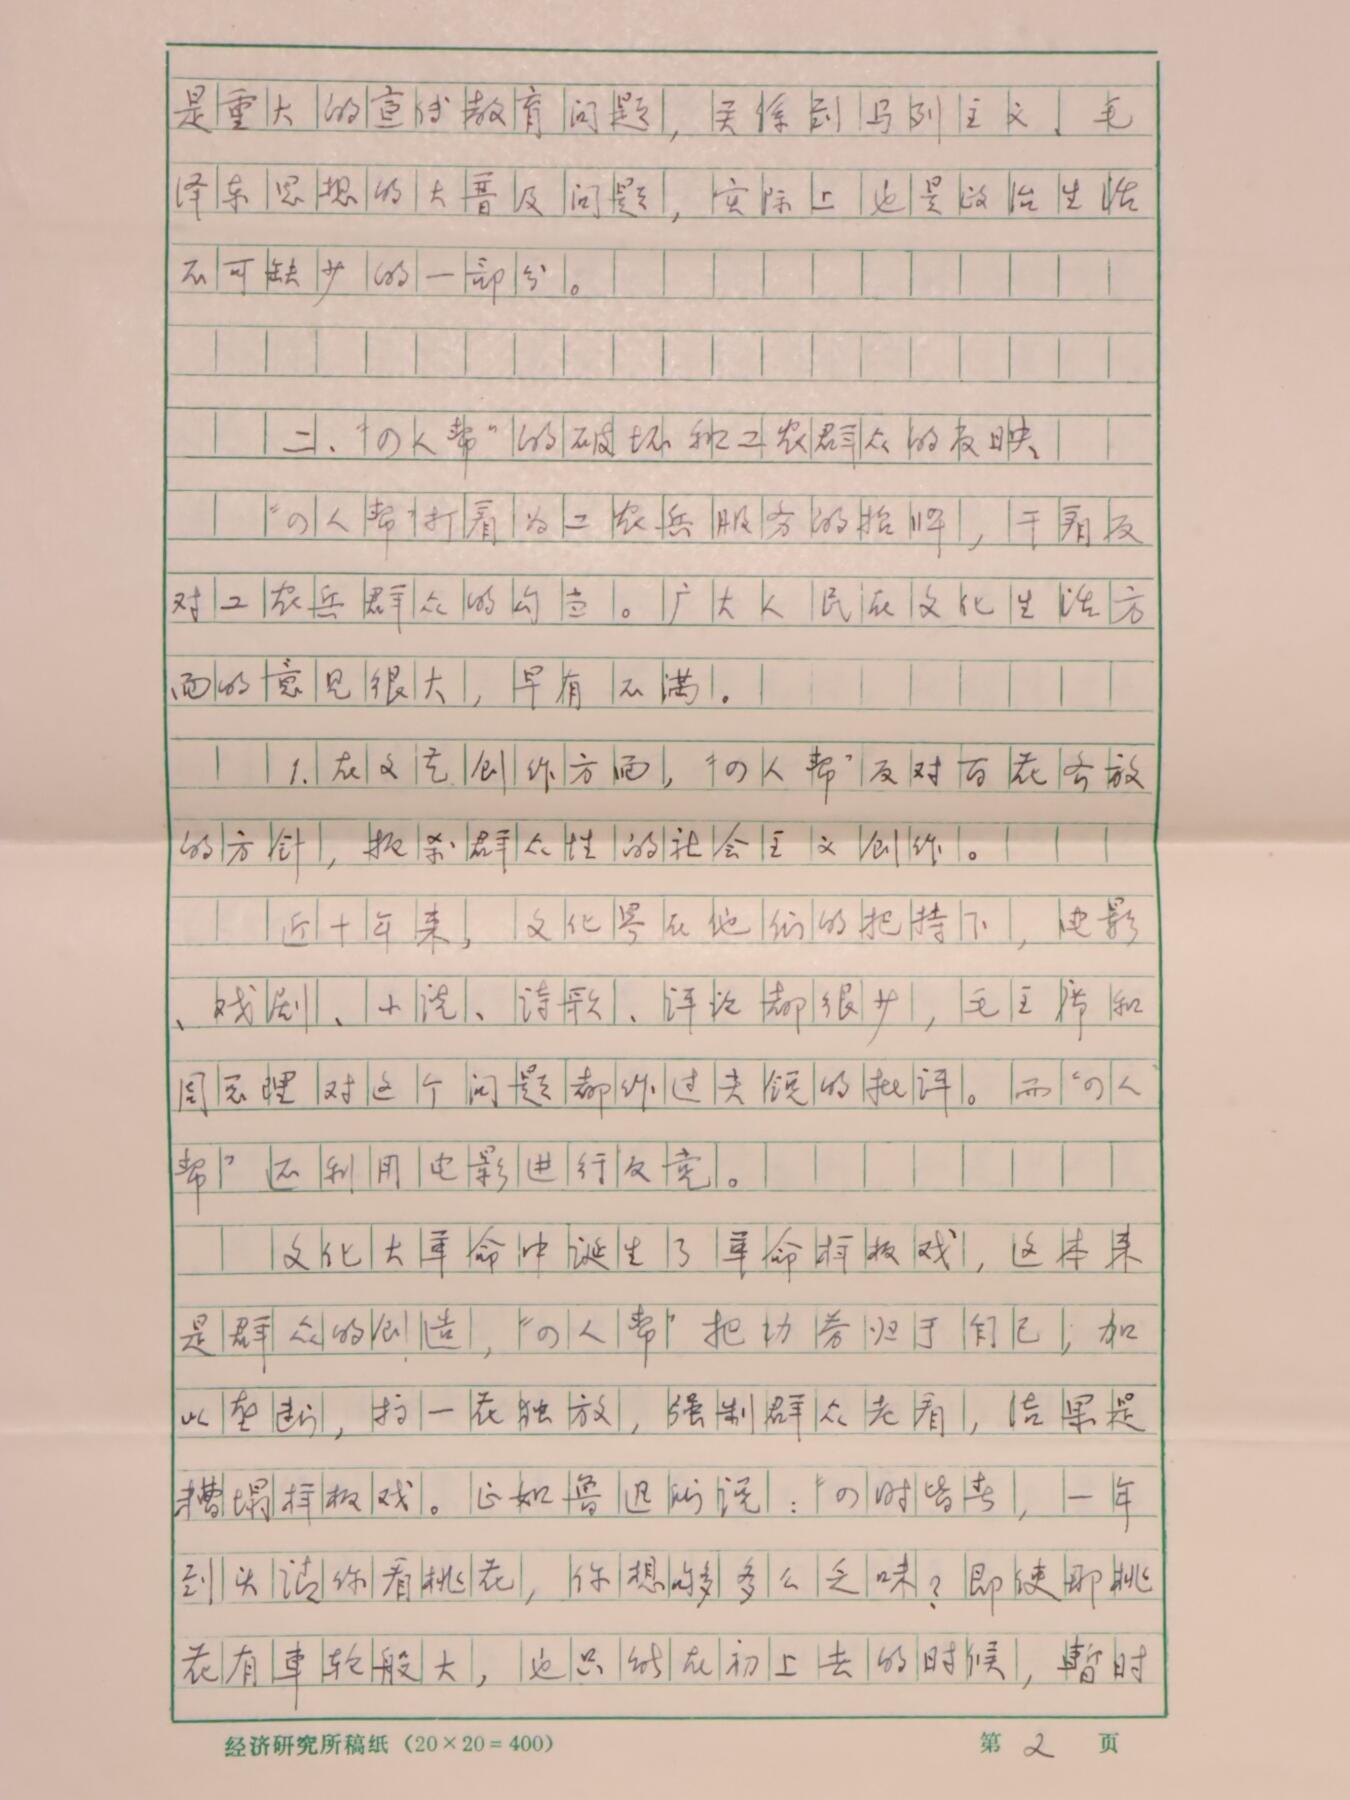 是重大的宣传教育问题，关係到马列主义、毛
泽东思想的大普及问题，实际上也是政治生活
不可缺少的一部分。
二、“四人帮”的破坏和工农群众的反映
“四人帮”打着为工农兵服务的招牌，干着反
对工农兵群众的勾当。广大人民在文化生活方
面的意见很大，早有不满。
1.在文艺创作方面，“四人帮”反对百花齐放
的方针，扼杀群众性的社会主义创作。
近十年来，文化界在他们的把持下，电影
、戏剧、小说、诗歌、评论都很少，毛主席和
周总理对这个问题都作过尖锐的批评。而“四人
帮”还利用电影进行反党。
文化大革命中诞生了革命样板戏，这本来
是群众的创造，“四人帮”把功劳归于自己，加
以垄断，搞一花独放，强制群众老看，结果是
糟塌样板戏。正如鲁迅所说：“四时皆春，一年
到头请你看桃花，你想够多么乏味？即使那桃
花有車轮般大，也只能在初上去的时候，暫时
经济研究所稿纸（20×20=400）
第 2 页